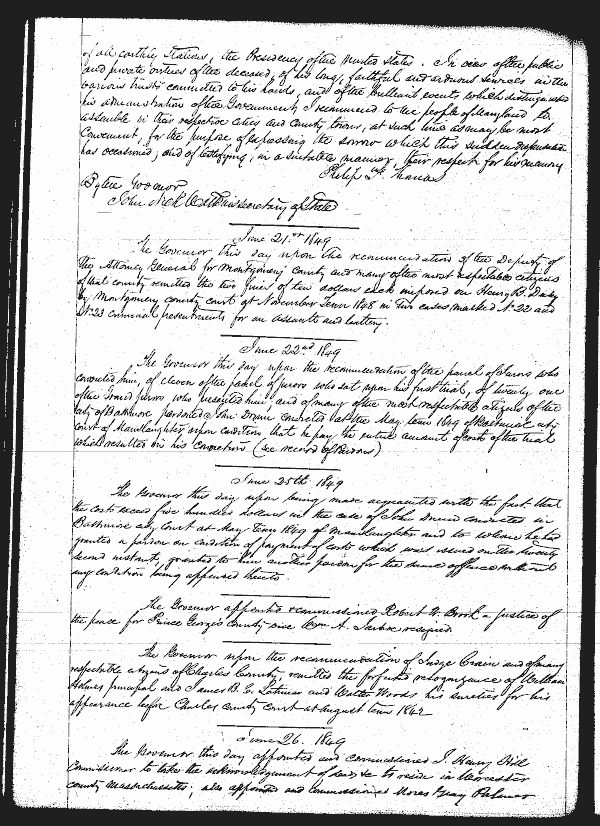 of all earthly Stations, the Presidency of the United States. In view of the public
and private virtues of the deceased, of his long, faithful and arduous services in the
various trusts committed to his hands, and of the brilliant events which distinguished
his administration of the Government, I recommend to the people of Maryland to
assemble in their respective cities and county towns, at such time as may be most
Convenient, for the purpose of expressing the sorrow which this sudden dispensation
has occasioned, and of testifying, in a suitable manner, their respect for his memory
Philip F. Thomas
By the Governor
John Secretary of State
June 21st 1849
The Governor this day upon the recommendation of the Deputy of
the Attorney General for Montgomery County and many of the most respectable citizens
of that county remitted the two fines of ten dollars each imposed on Henry B.
by Montgomery county court at November Term 1848 in two cases marked No 22 and
No 23 criminal presentments for an assault and battery.
June 22nd 1849
The Governor this day upon the recommendation of the panel of Jurors who
convicted him, of eleven of the panel of jurors who sat upon his first trial, of twenty one
of the Grand Jurors who presented him and of many of the most respectable citizens of the
city of Baltimore pardoned John convicted at the May term 1849 of Baltimore city
court of Manslaughter upon condition that he pay the entire amount of costs of the trial
which resulted in his conviction (see record of Pardons)
June 25th 1849
The Governor this day upon being made acquainted with the fact that
the costs exceed five hundred dollars in the case of John convicted in
Baltimore city Court at May Term 1849 of Manslaughter and to whom he had
granted a pardon on condition of payment of costs which was issued on the twenty
second instant, granted to him another pardon for the same offence without
any condition being appended thereto.
The Governor appointed & commissioned Robert W. a Justice of
the peace for Prince George's County vice Wm A. resigned.
The Governor upon the recommendation of Judge Crain and of many
respectable citizens of Charles County remitted the forfeited recognizance of William
Holmes principal and James B. C. and Walter Woods his sureties for his
appearance before Charles County court at August term 1842
June 26. 1849
The Governor this day appointed and commissioned J. Henry Hill
Commissioner to take the acknowledgment of deeds &c to reside in Worcester
county Massachusetts; also appointed and commissioned Moses Gray Palmer